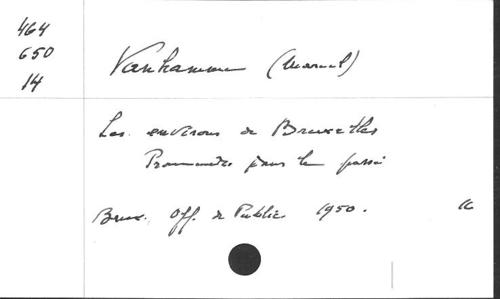 464
650
14
Vanhamme (Marcel)
Les environs de Bruxelles
Promenades dans le passé
Brux., Off. de Public. 1950.